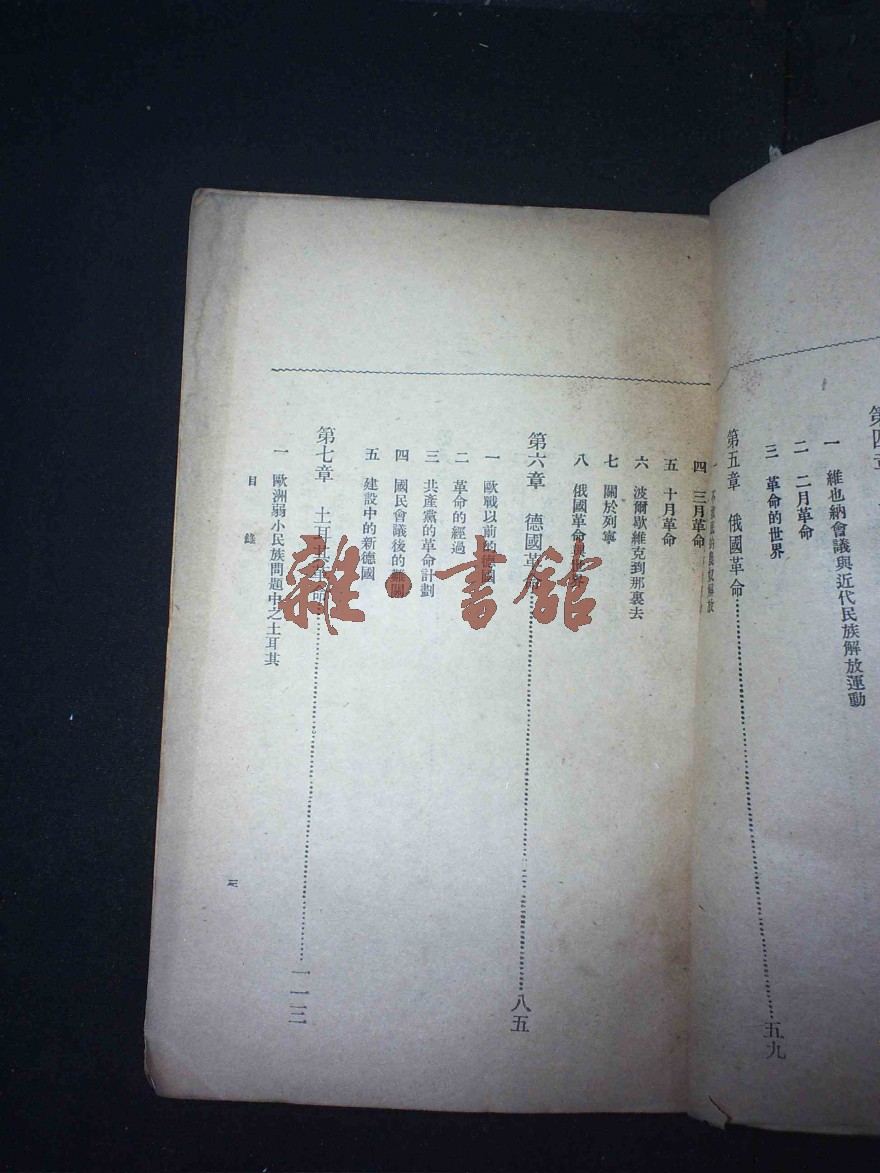 第四章
一 維也納會議與近代民族解放運動
二 二月革命
三 革命的世界
第五章 俄國革命……五九
四 三月革命
五 十月革命
六 波爾歇維克到那裏去
七 關於列寧
八 俄國革命與世界
第六章 德國革命……八五
一 歐戰以前的德國
二 革命的經過
三 共產黨的革命計劃
四 國民會議後的難關
五 建設中的新德國
第七章 土耳其革命……一一二
一 歐洲弱小民族問題中之土耳其
目錄
三
雜·書館